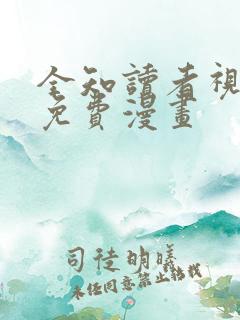 全知讀者視
免費漫畫
司徒明曦
未经同意禁止转载